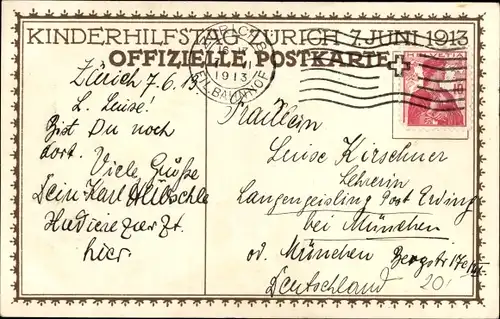 KINDERHILFSTAG ZÜRICH 7. JUNI 1913
OFFIZIELLE POSTKARTE
1913
BAHNHOF
HELVETIA
10
Zürich 7.6.13
L. Luise!
Bist Du noch
dort. Viele Grüße
Dein Karl
zur Zt.
hier.
Fräulein
Luise Kirschner
Lehrerin
Langengeisling Post Erding
bei München
od. München Bergstr
Deutschland
20.